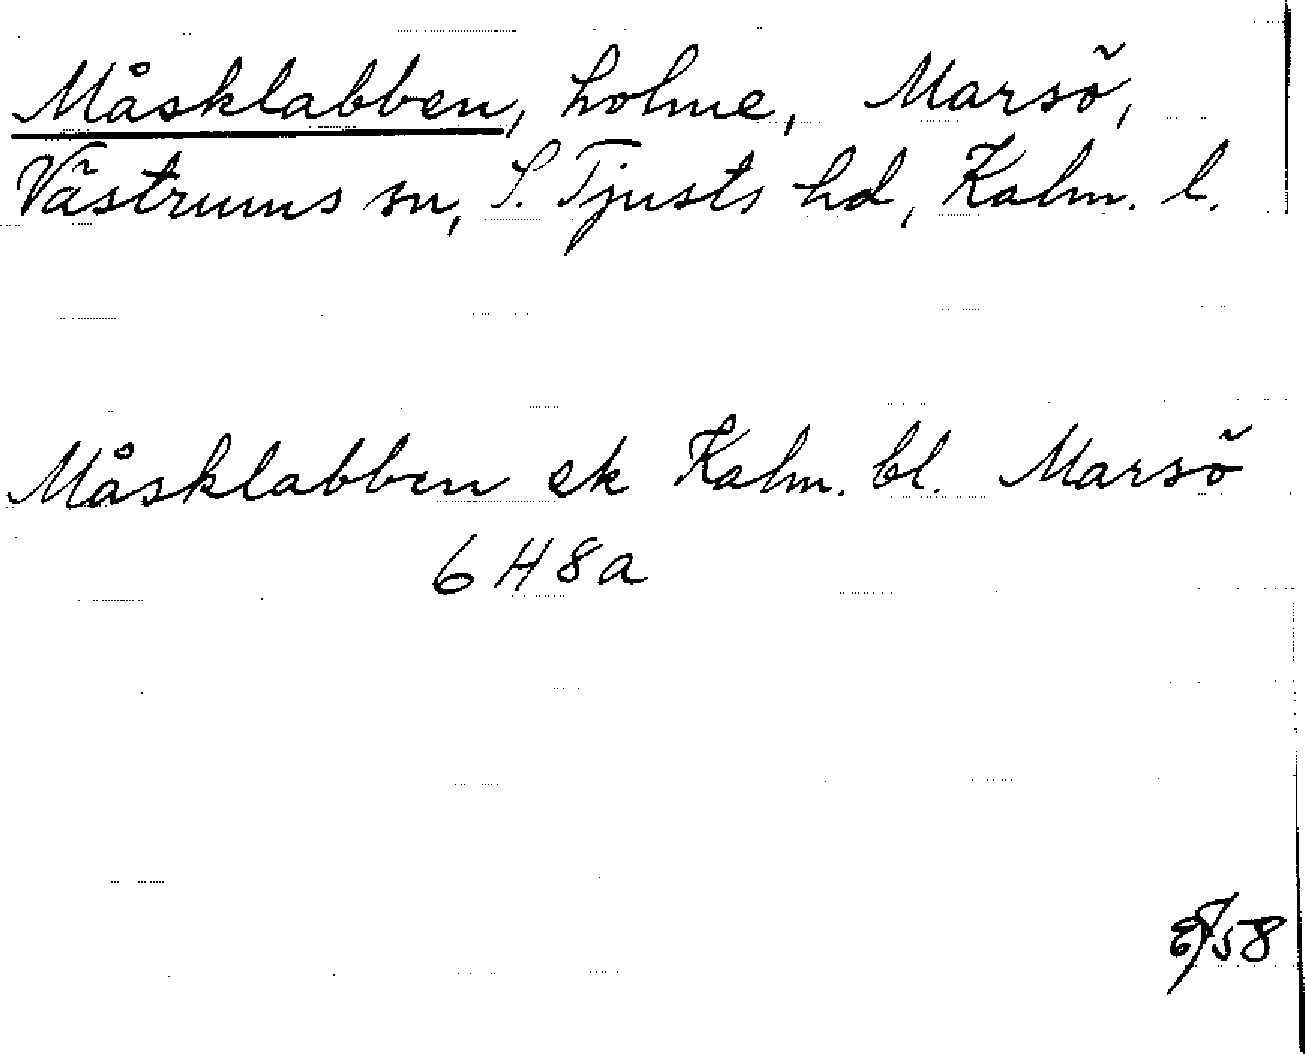 Måsklabben, holme, Marsö,
Västrums sn, S. Tjusts hd, Kalm. l.
Måsklabben ek Kalm. bl. Marsö
6 H 8 a
58